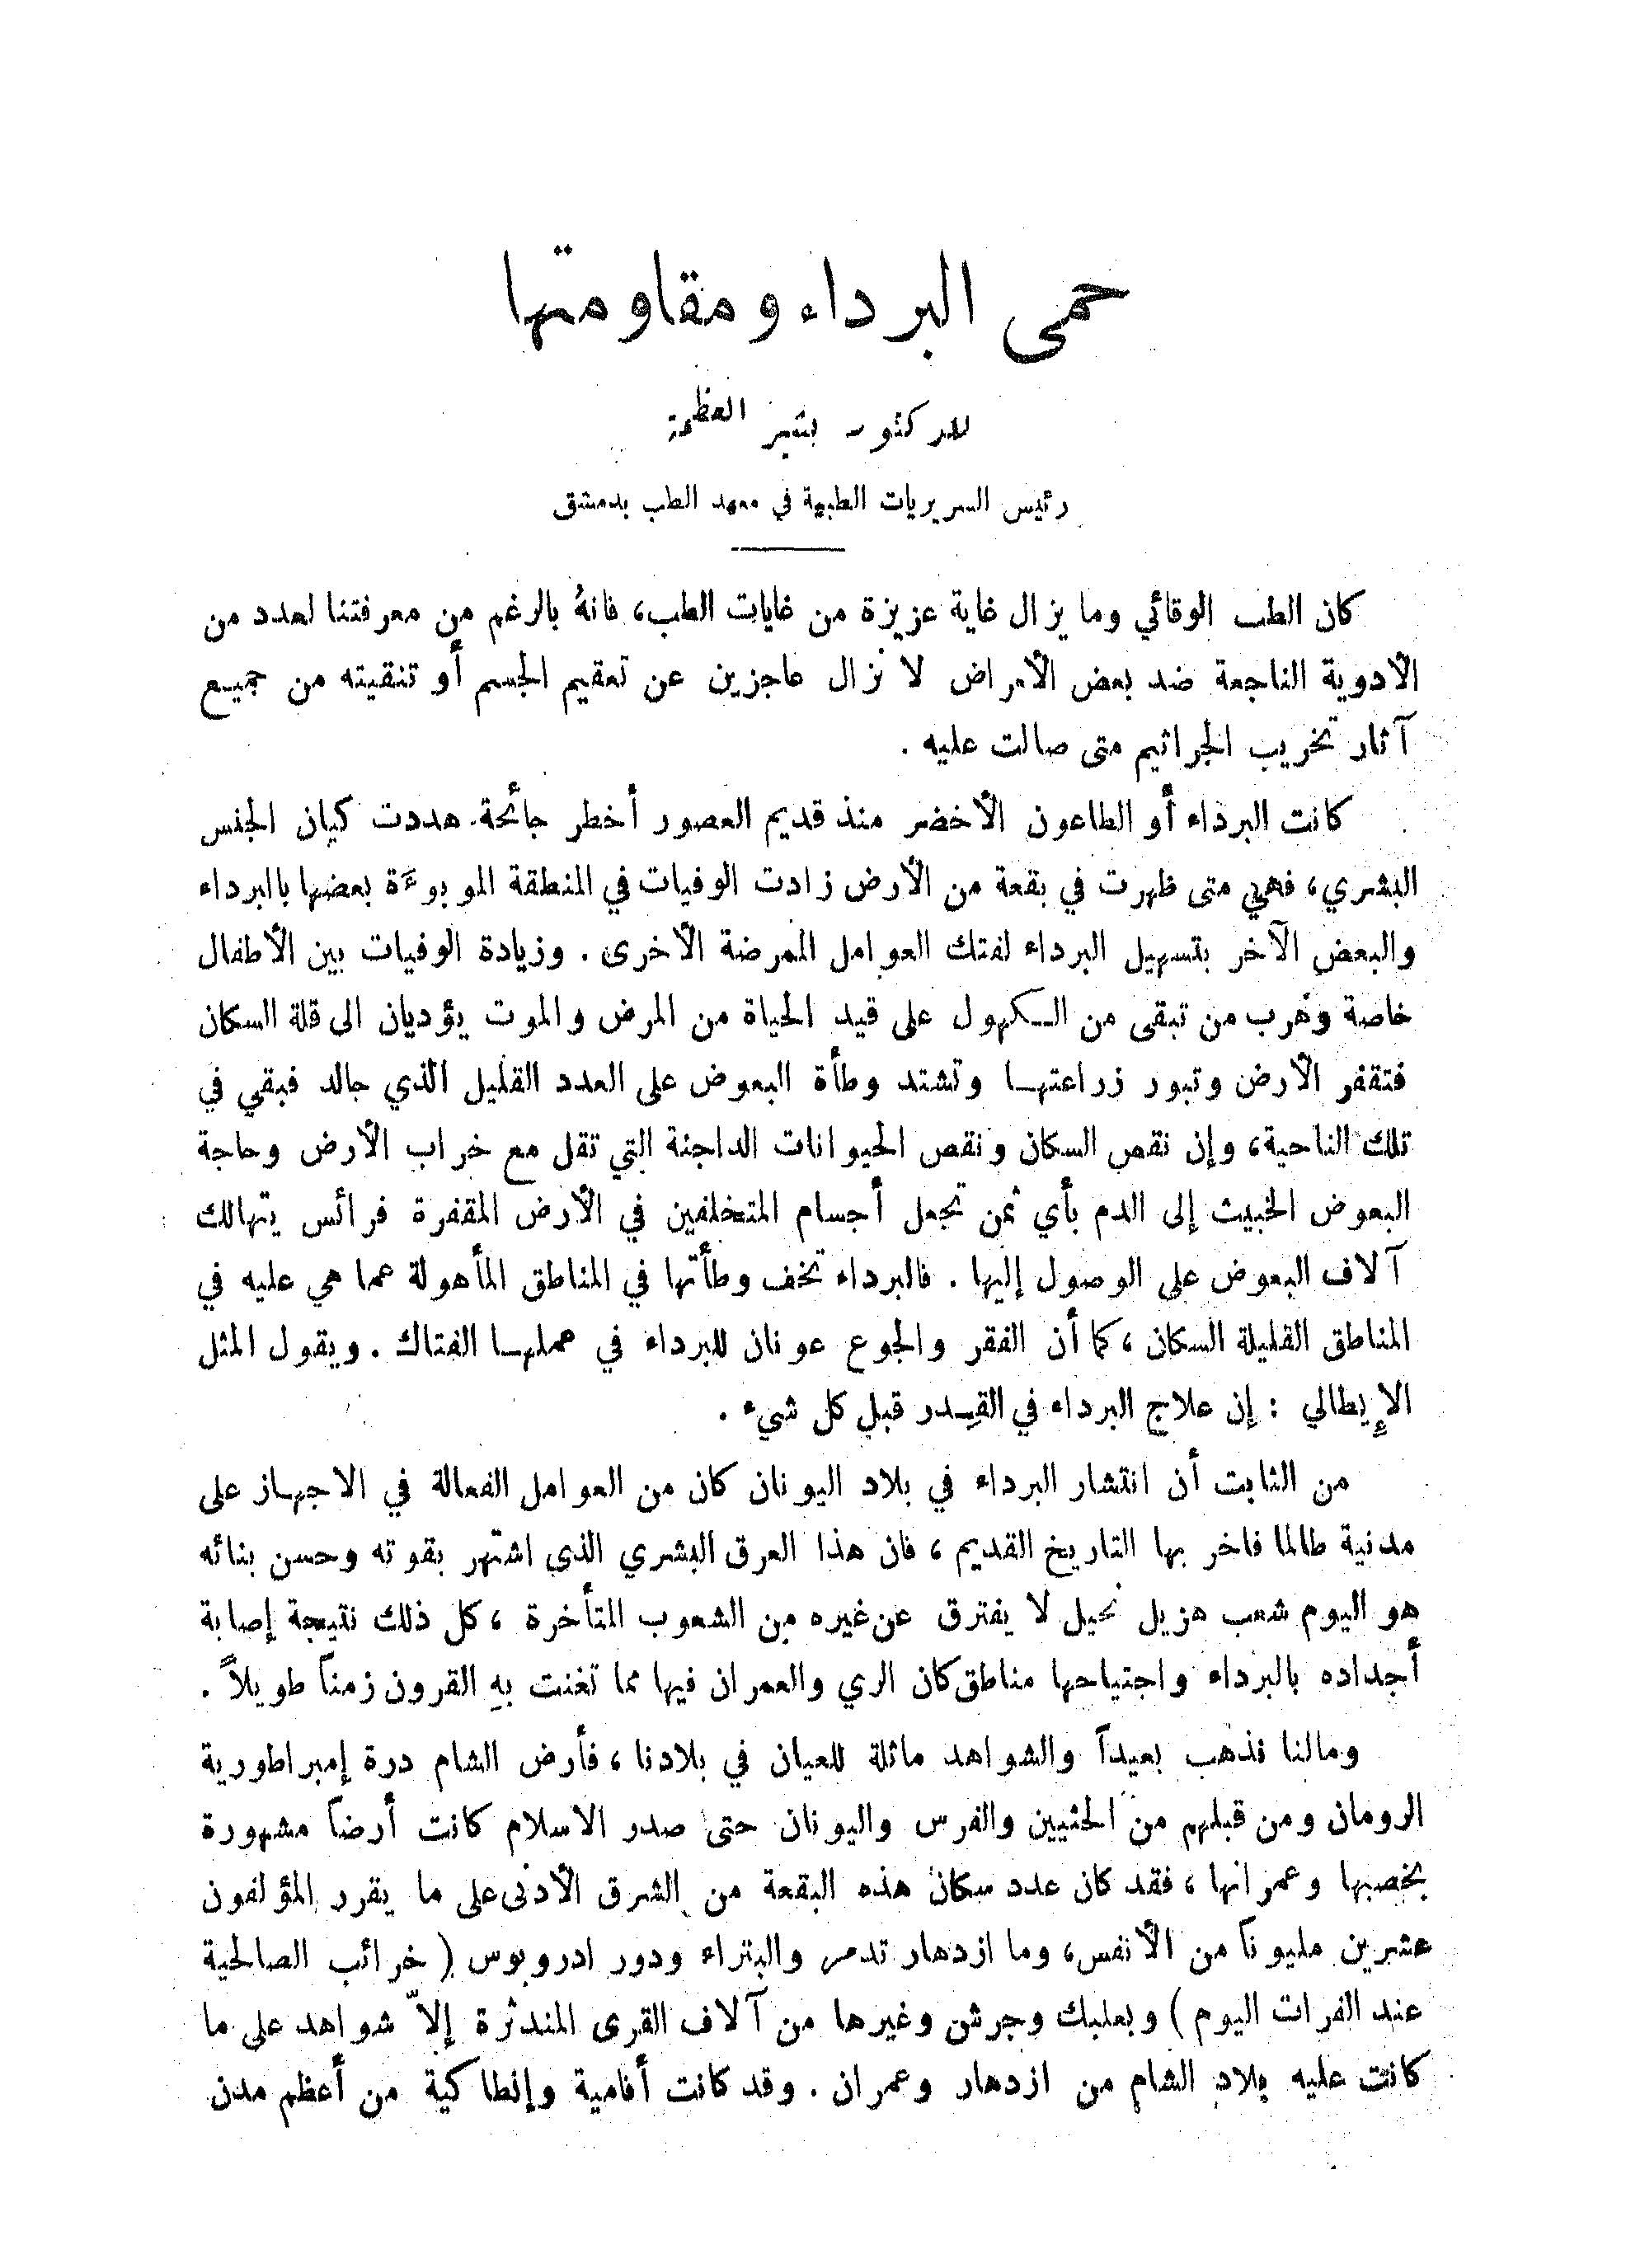 حمى البرداء ومقاومتها
للدكتور بشير العظمة
رئيس السريريات الطبية في معهد الطب بدمشق
كان الطب الوقائي وما يزال غاية عزيزة من غايات الطب، فانهُ بالرغم من معرفتنا لعدد من
الأدوية الناجعة ضد بعض الأمراض لا نزال عاجزين عن تعقيم الجسم أو تنقيته من جميع
آثار تخريب الجراثيم متى صالت عليه .
كانت البرداء أو الطاعون الأخضر منذ قديم العصور أخطر جائحة هددت كيان الجنس
البشري، فهي متى ظهرت في بقعة من الأرض زادت الوفيات في المنطقة الموبوءَة بعضها بالبرداء
والبعض الآخر بتسهيل البرداء لفتك العوامل الممرضة الأخرى . وزيادة الوفيات بين الأطفال
خاصة وهرب من تبقى من الكهول على قيد الحياة من المرض والموت يؤديان الى قلة السكان
فتقفر الأرض وتبور زراعتها وتشتد وطأة البعوض على العدد القليل الذي جالد فبقي في
تلك الناحية، وإن نقص السكان ونقص الحيوانات الداجنة التي تقل مع خراب الأرض وحاجة
البعوض الخبيث إلى الدم بأي ثمن تجعل أجسام المتخلفين في الأرض المقفرة فرائس يتهالك
آلاف البعوض على الوصول إليها . فالبرداء تخف وطأتها في المناطق المأهولة عما هي عليه في
المناطق القليلة السكان ، كما أن الفقر والجوع عونان للبرداء في عملها الفتاك . ويقول المثل
الإيطالي : إن علاج البرداء في القِدر قبل كل شيء .
من الثابت أن انتشار البرداء في بلاد اليونان كان من العوامل الفعالة في الاجهاز على
مدنية طالما فاخر بها التاريخ القديم ، فان هذا العرق البشري الذي اشتهر بقوته وحسن بنائه
هو اليوم شعب هزيل نحيل لا يفترق عن غيره من الشعوب المتأخرة ، كل ذلك نتيجة إصابة
أجداده بالبرداء واجتياحها مناطق كان الري والعمران فيها مما تغنت بهِ القرون زمناً طويلاً .
ومالنا نذهب بعيداً والشواهد ماثلة للعيان في بلادنا ، فأرض الشام درة إمبراطورية
الرومان ومن قبلهم من الحثيين والفرس واليونان حتى صدر الاسلام كانت أرضاً مشهورة
بخصبها وعمرانها ، فقد كان عدد سكان هذه البقعة من الشرق الأدنى على ما يقرر المؤلفون
عشرين مليوناً من الأنفس، وما ازدهار تدمر والبتراء ودور ادروبوس ( خرائب الصالحية
عند الفرات اليوم ) وبعلبك وجرش وغيرها من آلاف القرى المندثرة إلاّ شواهد على ما
كانت عليه بلاد الشام من ازدهار وعمران . وقد كانت أفامية وإنطاكية من أعظم مدن